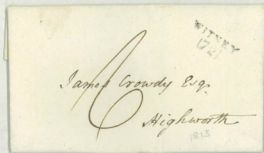 WITNEY
(72)
6
James Crowdy Esqr
Highworth